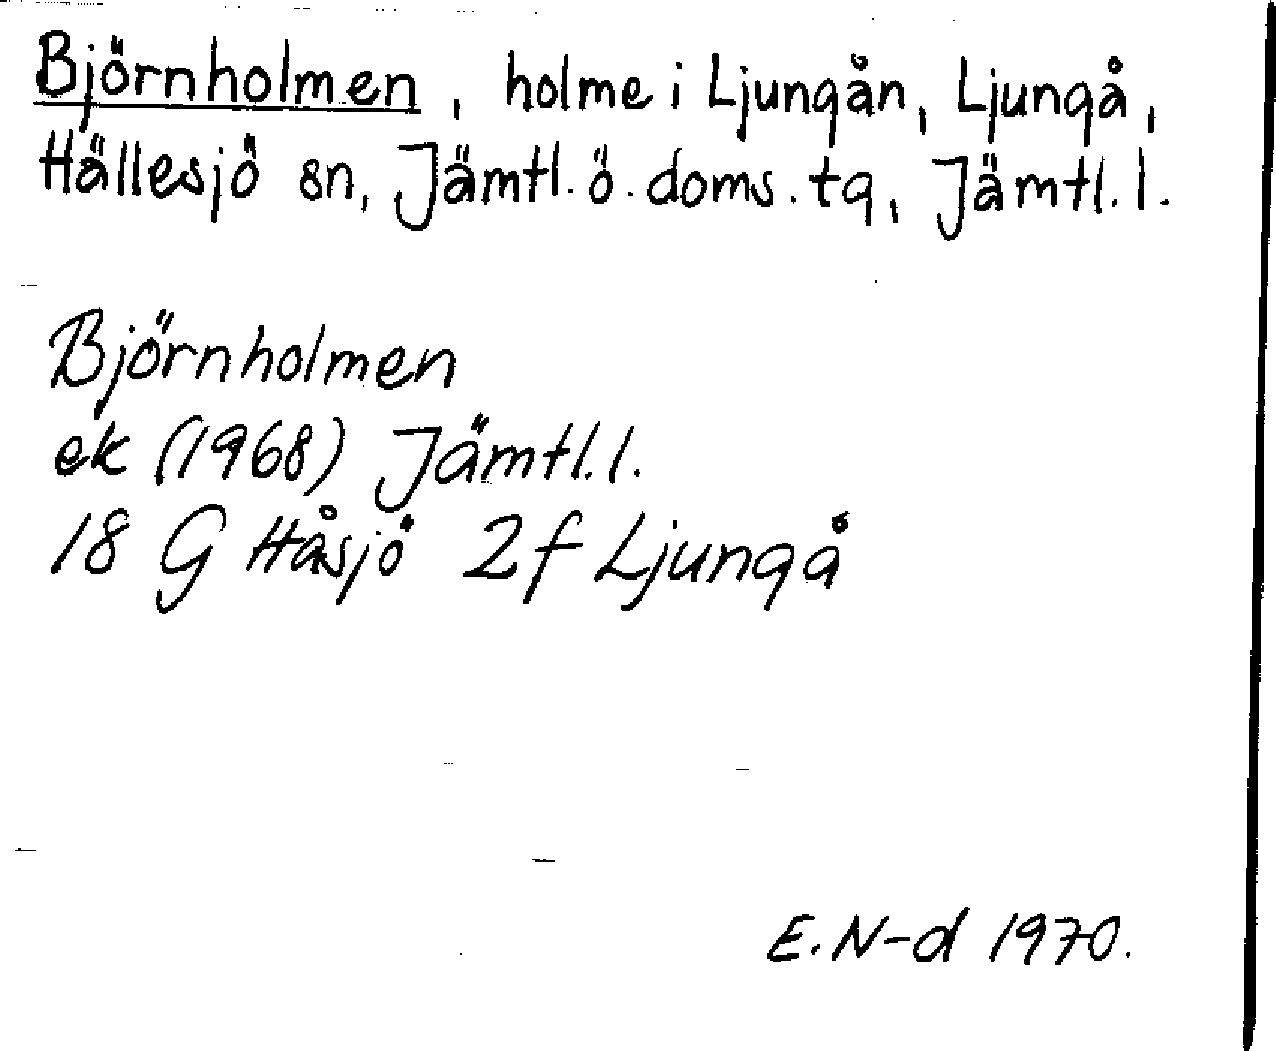 Björnholmen, holme i Ljungån, Ljungå,
Hällesjö sn, Jämtl. ö. doms. tg, Jämtl. l.
Björnholmen
ek (1968) Jämtl. l.
18 G Håsjö 2f Ljungå
E. N-d 1970.